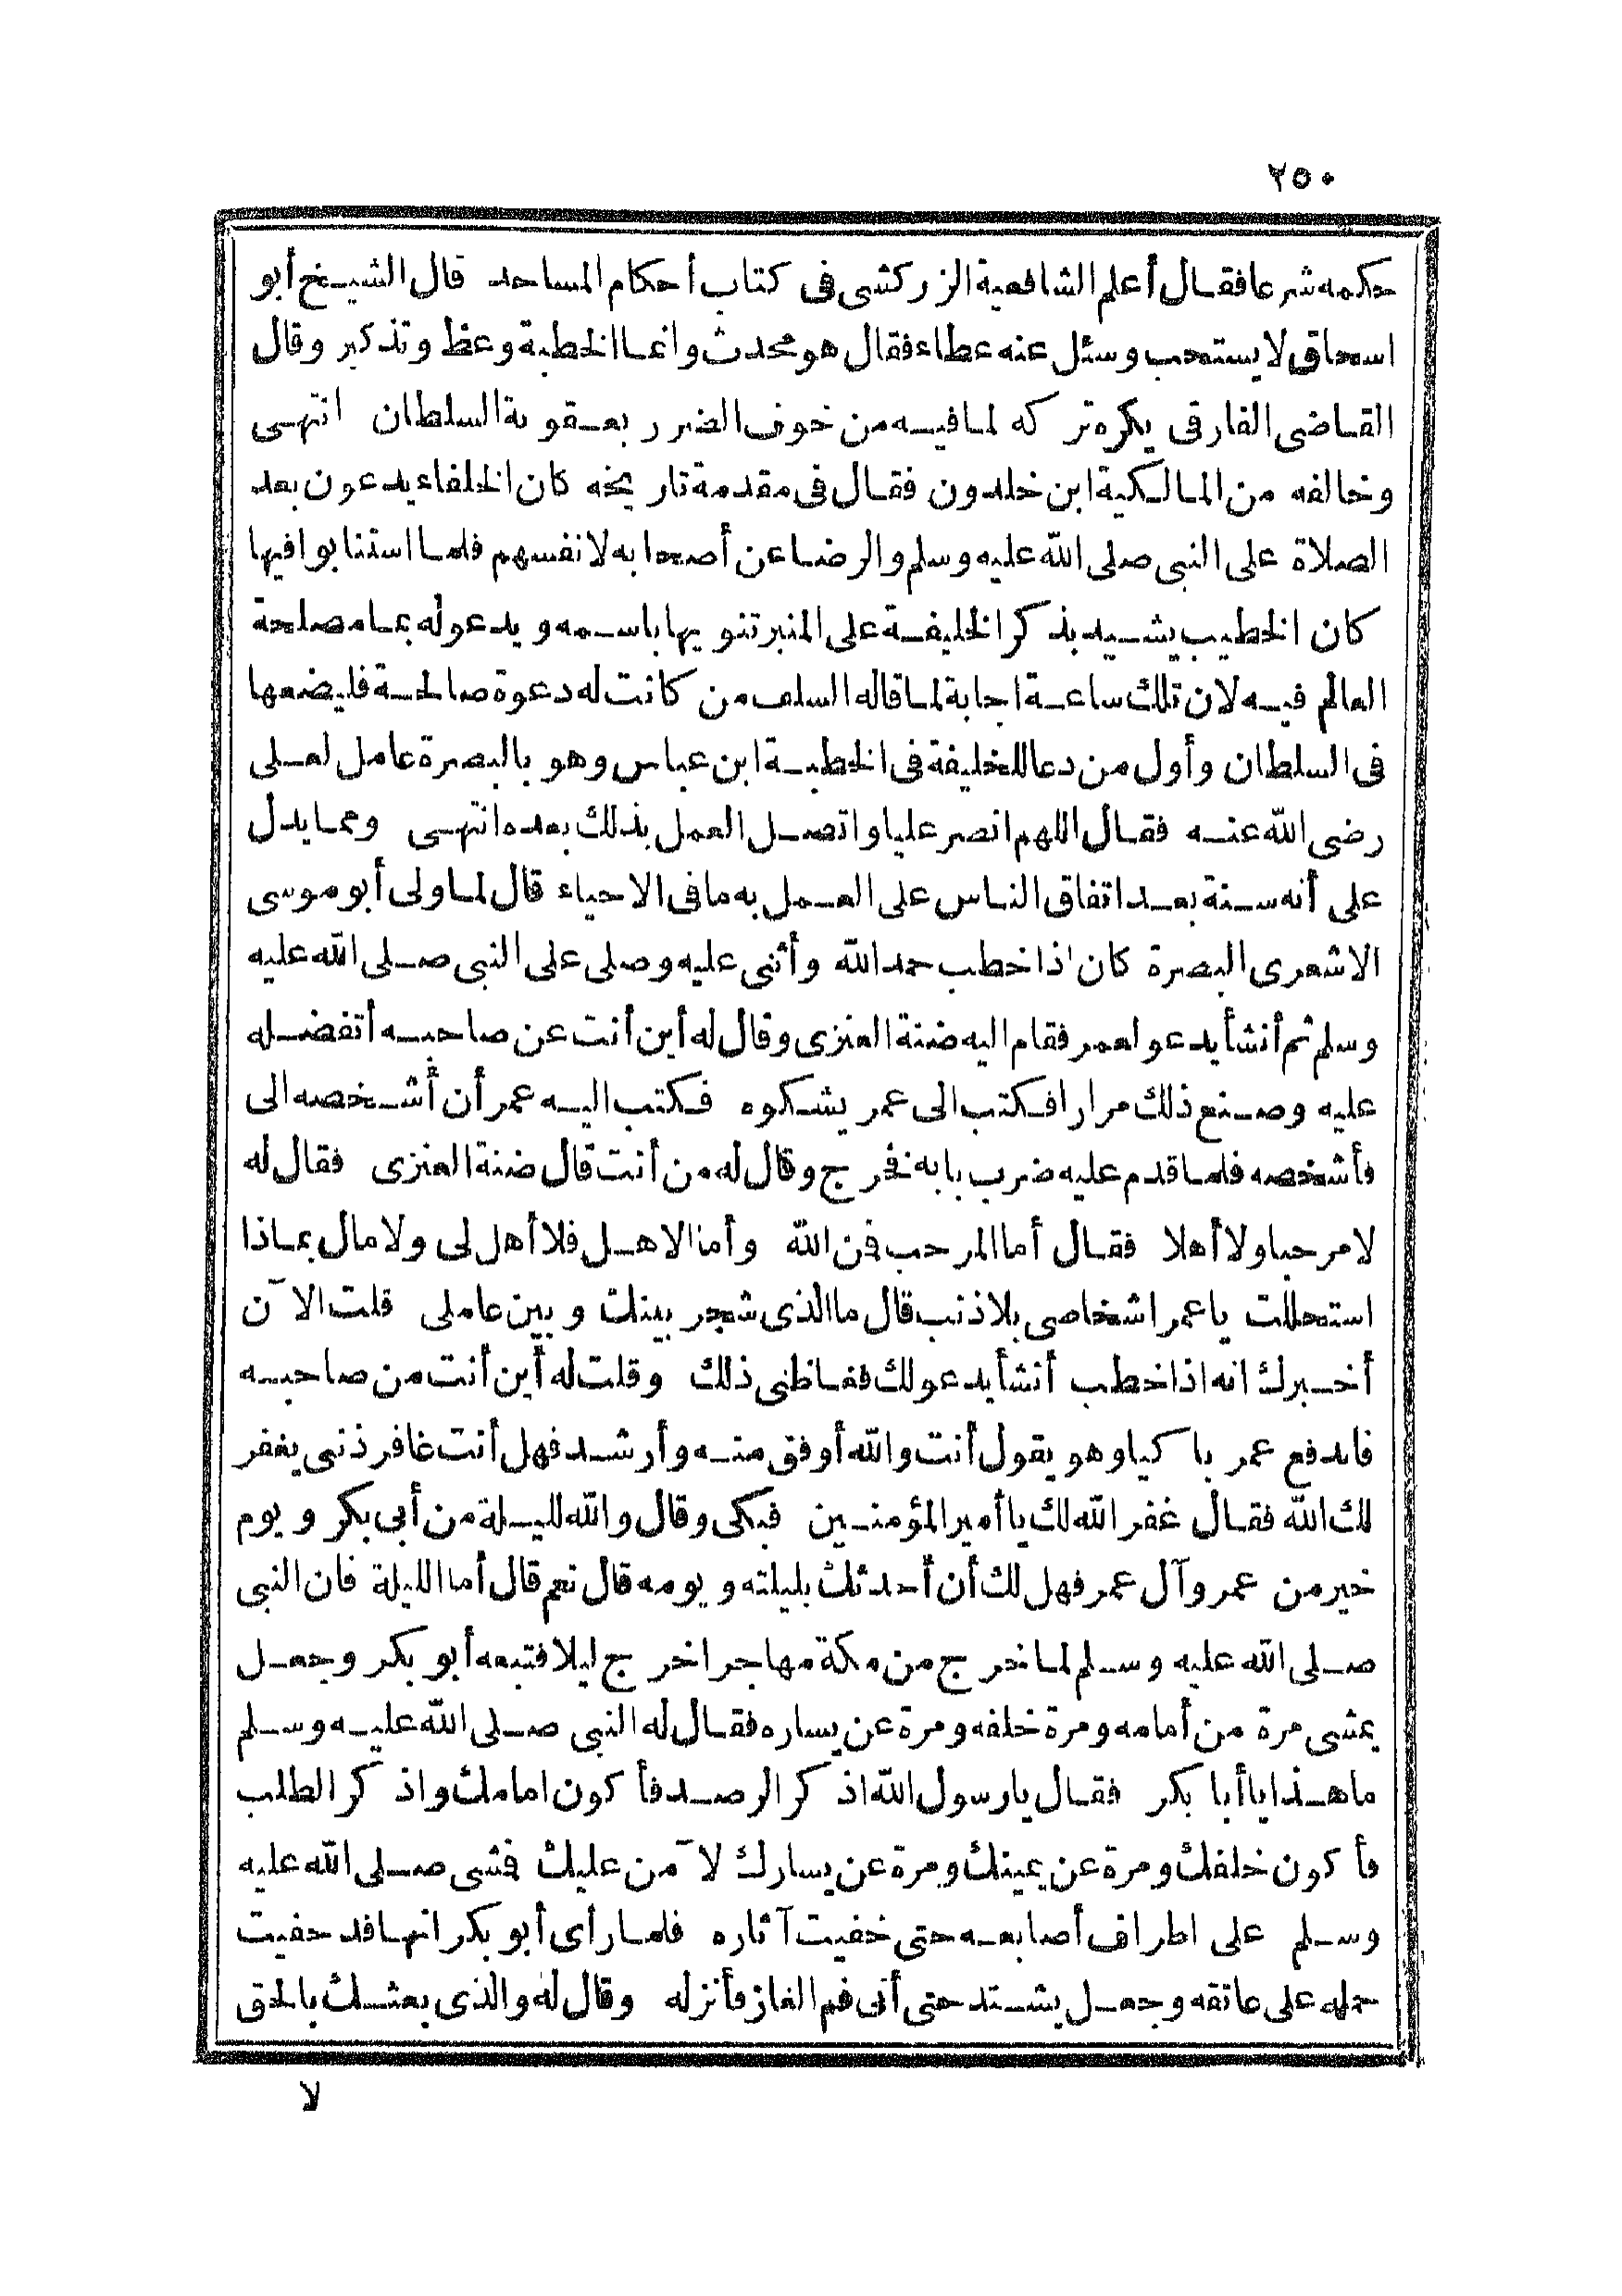 ٢٥٠
حكمه شرعا فقال أعلم الشافعية الزركشى فى كتاب أحكام المساجد قال الشيخ أبو
اسحاق لا يستحب وسئل عنه عطاء فقال هو محدث وانما الخطبة وعظ وتذكير وقال
القاضى الفارقى يكره تركه لما فيه من خوف الضرر بعقوبة السلطان انتهى
وخالفه من المالكية ابن خلدون فقال فى مقدمة تاريخه كان الخلفاء يدعون بعد
الصلاة على النبى صلى الله عليه وسلم والرضا عن أصحابه لانفسهم فلما استنابوا فيها
كان الخطيب يشيد بذكر الخليفة على المنبر تنويها باسمه ويدعو له بما مصلحة
العالم فيه لان تلك ساعة اجابة لما قاله السلف من كانت له دعوة صالحة فليضعها
فى السلطان وأول من دعا للخليفة فى الخطبة ابن عباس وهو بالبصرة عامل لعلى
رضى الله عنه فقال اللهم انصر عليا واتصل العمل بذلك بعده انتهى ومما يدل
على أنه سنة بعد اتفاق الناس على العمل به ما فى الاحياء قال لما ولى أبو موسى
الاشعرى البصرة كان اذا خطب حمد الله وأثنى عليه وصلى على النبى صلى الله عليه
وسلم ثم أنشأ يدعو لعمر فقام اليه ضنة العنزى وقال له أين أنت عن صاحبه أتفضله
عليه وصنع ذلك مرارا فكتب الى عمر يشكوه فكتب اليه عمر أن أشخصه الى
فأشخصه فلما قدم عليه ضرب بابه فخرج وقال له من أنت قال ضنة العنزى فقال له
لا مرحبا ولا أهلا فقال أما المرحب فمن الله وأما الاهل فلا أهل لى ولا مال بماذا
استحللت يا عمر اشخاصى بلا ذنب قال ما الذى شجر بينك وبين عاملى قلت الآن
أخبرك انه اذا خطب أنشأ يدعو لك فغاظنى ذلك وقلت له أين أنت من صاحبه
فاندفع عمر باكيا وهو يقول أنت والله أوفق منه وأرشد فهل أنت غافر ذنبى يغفر
لك الله فقال غفر الله لك يا أمير المؤمنين فبكى وقال والله لليلة من أبى بكر ويوم
خير من عمر وآل عمر فهل لك أن أحدثك بليلته ويومه قال نعم قال أما الليلة فان النبى
صلى الله عليه وسلم لما خرج من مكة مهاجرا خرج ليلا فتبعه أبو بكر وجعل
يمشى مرة من أمامه ومرة خلفه ومرة عن يساره فقال له النبى صلى الله عليه وسلم
ما هذا يا أبا بكر فقال يا رسول الله اذكر الرصد فأكون امامك واذكر الطلب
فأكون خلفك ومرة عن يمينك ومرة عن يسارك لآمن عليك فمشى صلى الله عليه
وسلم على اطراف أصابعه حتى خفيت آثاره فلما رأى أبو بكر انها قد حفيت
حمله على عاتقه وجعل يشتد حتى أتى فم الغار فأنزله وقال له والذى بعثك بالحق
لا